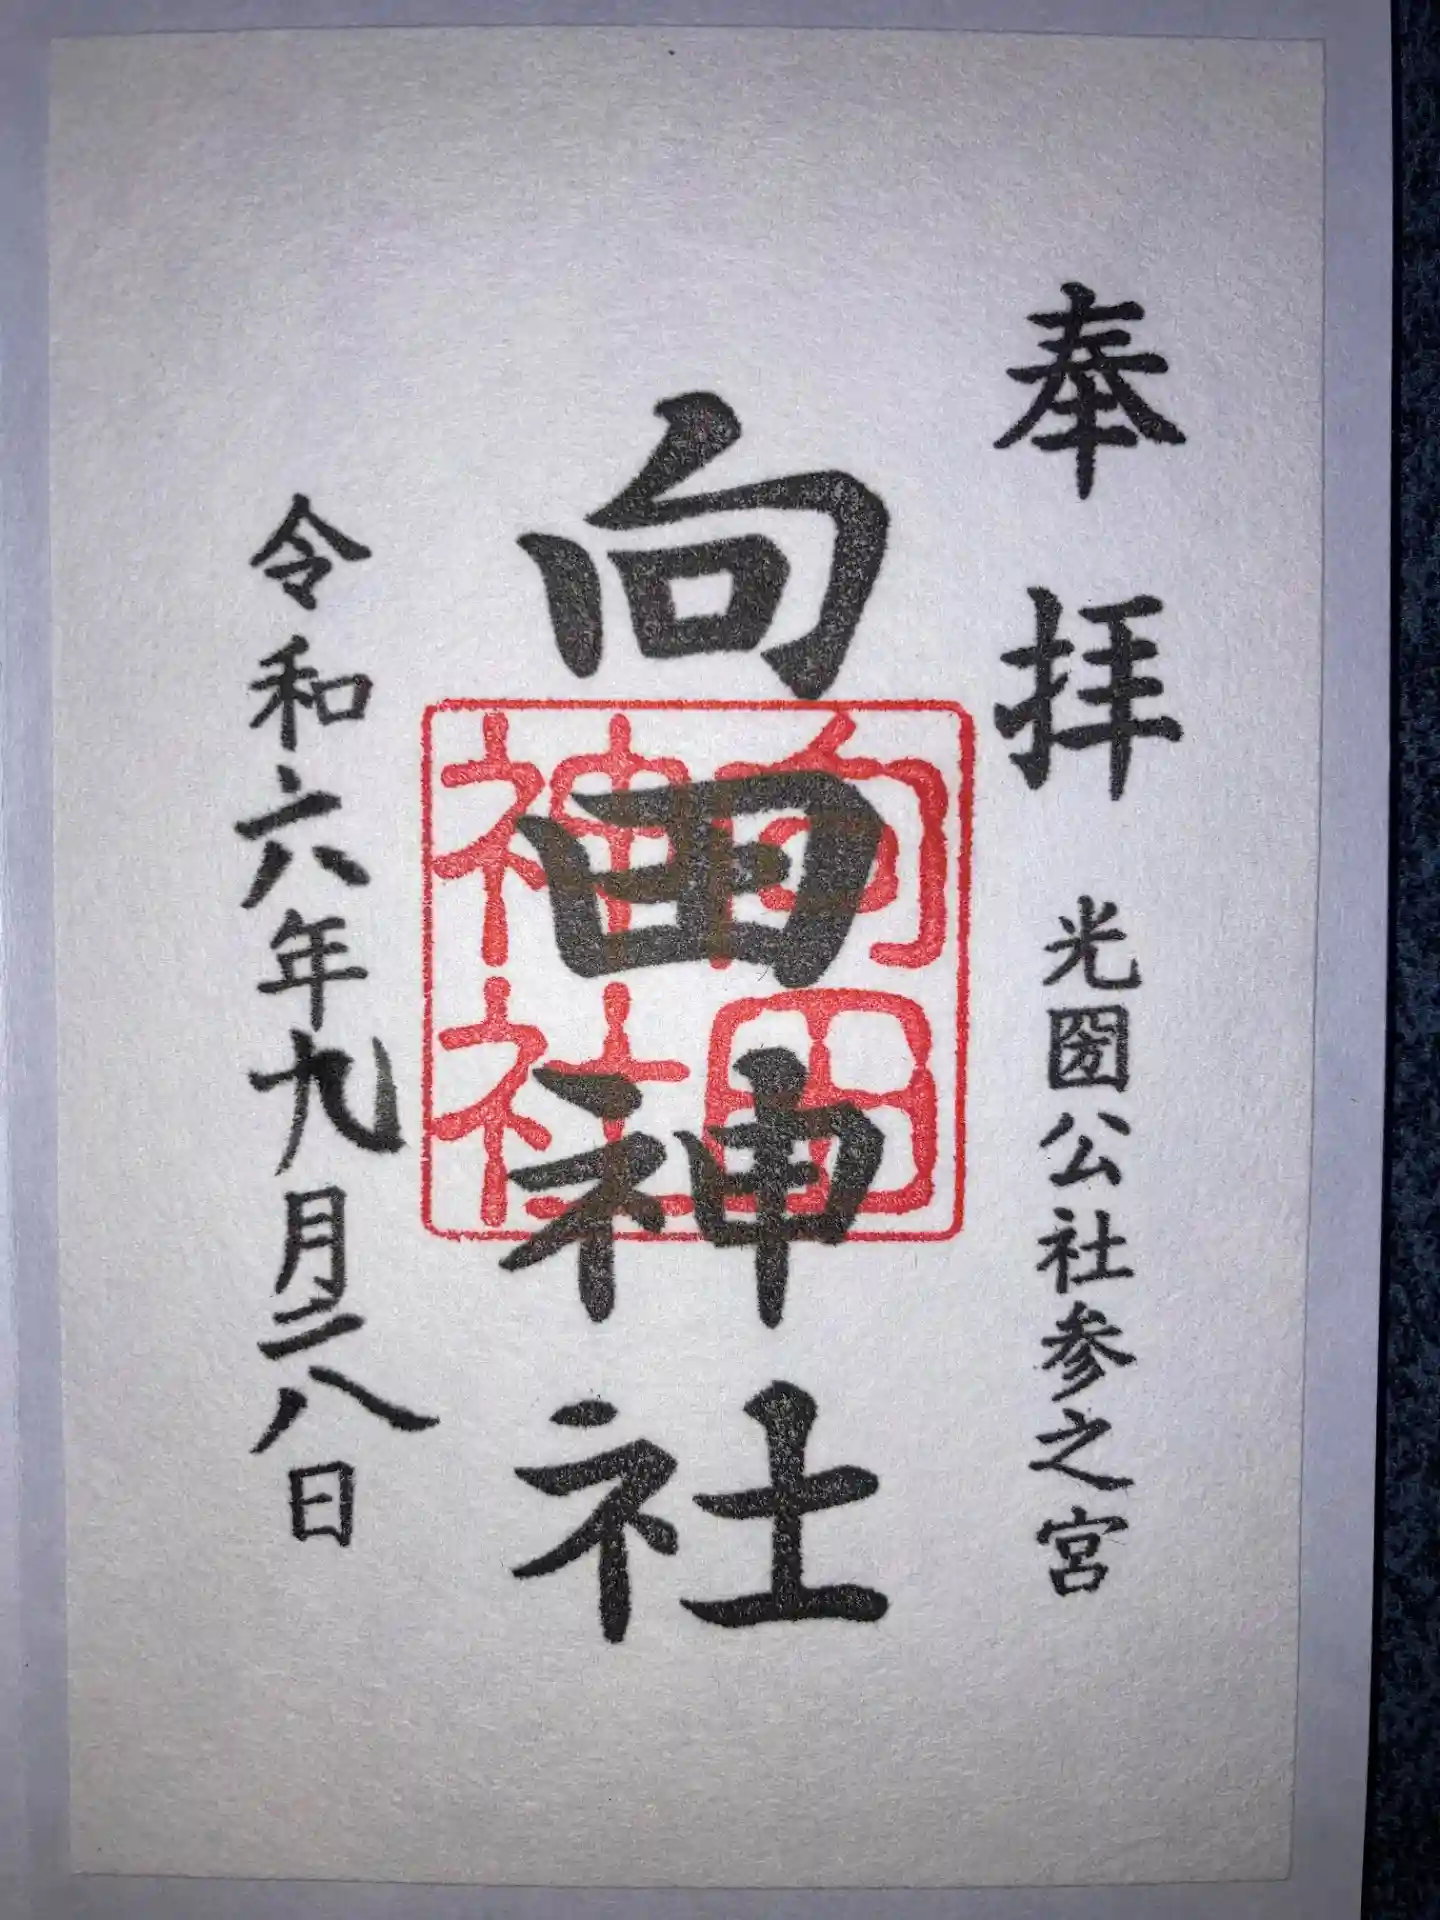 奉拝 光圀公社参之宮
向田神社
向田神社
令和六年九月二八日